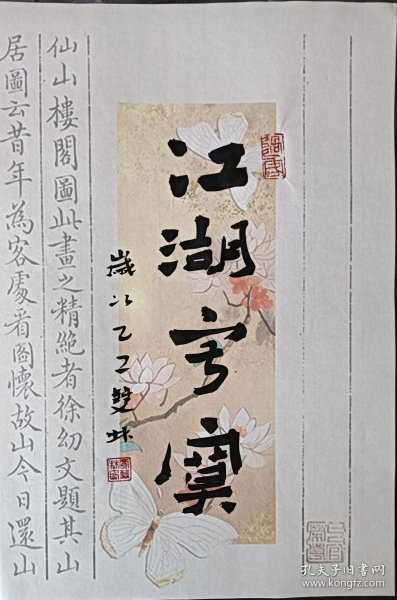 江湖
歲次乙雙林
仙山樓閣圖此畫之精絶者徐幼文題其山
居圖云昔年為客處看圖懷故山今日還山
孔夫子旧书网
www.kongfz.com